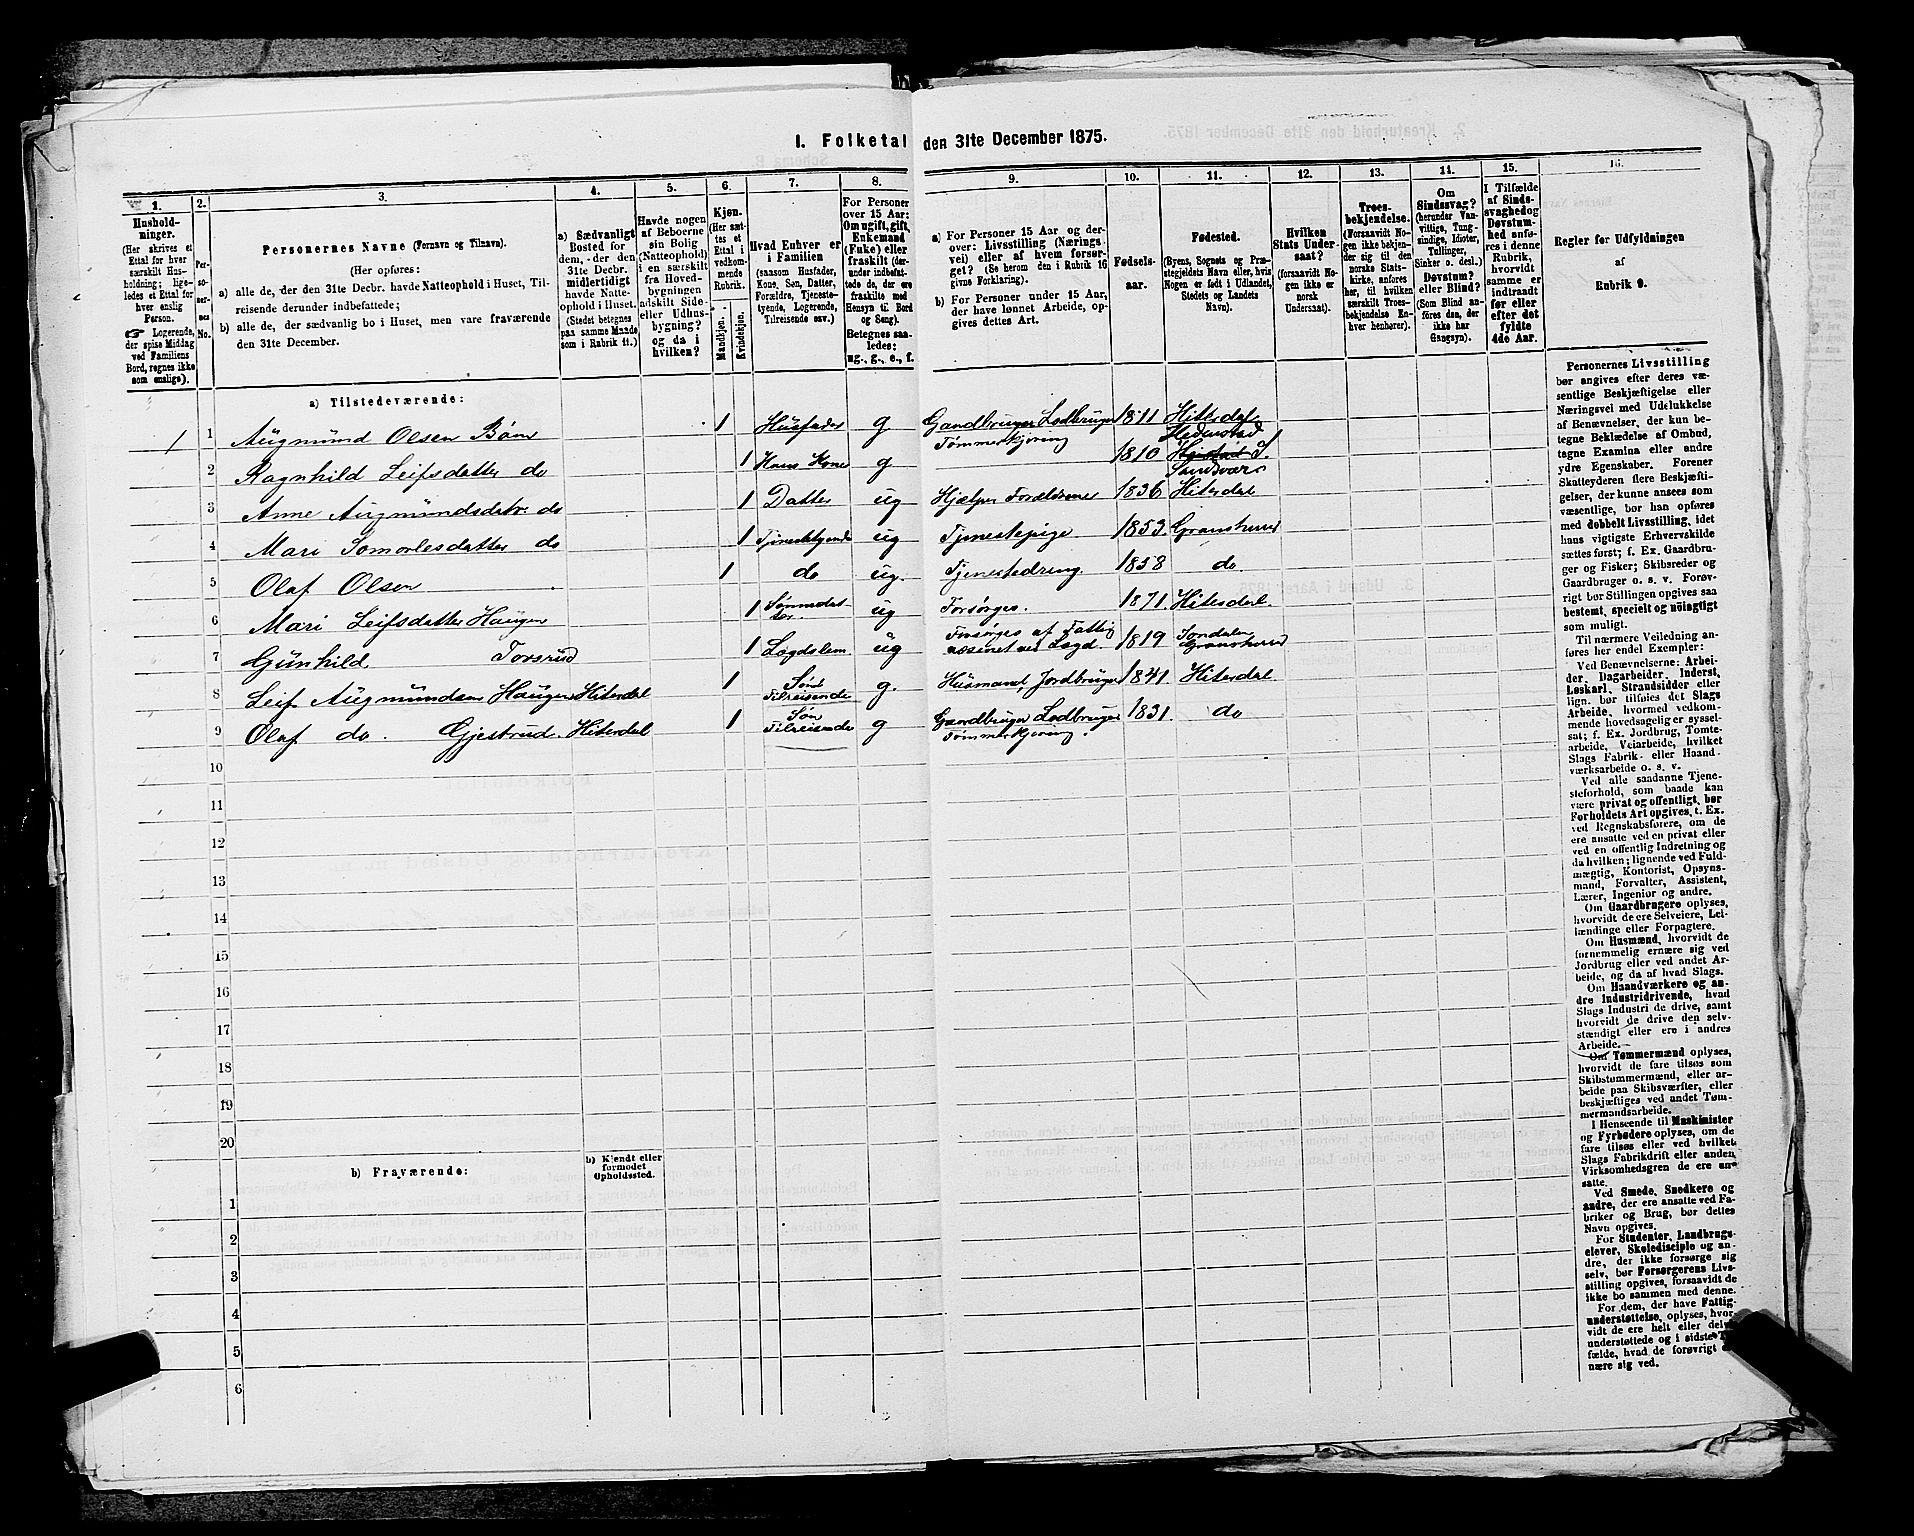 I. Folketal den 31te December 1875.
1.
Hushold-
ninger.
(Her skrives et
Ettal for hver
særskilt Hus-
holdning; lige-
ledes et Ettal for
hver enslig
Person.
☞ Logerende,
der spise Middag
ved Familiens
Bord, regnes ikke
som enslige).
2.
Per-
so-
ner-
nes
No.
3.
Personernes Navne (Fornavn og Tilnavn).
(Her opføres:
a) alle de, der den 31te Decbr. havde Natteophold i Huset, Til-
reisende derunder indbefattede;
b) alle de, der sædvanlig bo i Huset, men vare fraværende
den 31te December.
4.
a) Sædvanligt
Bosted for
dem, der den
31te Decbr.
midlertidigt
havde Natte-
ophold i Huset.
(Stedet betegnes
paa samme Maade
som i Rubrik 11.)
5.
Havde nogen
af Beboerne
sin Bolig
(Natteophold)
i en særskilt
fra Hoved-
bygningen
adskilt Side-
eller Udhus-
bygning?
og da i
hvilken?
6.
Kjøn.
(Her sæt-
tes et
Ettal i
vedkom-
mende
Rubrik.
Mandkjøn.
Kvindekjøn.
7.
Hvad Enhver er
i Familien
(saasom Husfader,
Kone, Søn, Datter,
Forældre, Tjeneste-
tyende, Logerende,
Tilreisende osv.)
8.
For Personer
over 15 Aar:
Om ugift, gift,
Enkemand
(Enke) eller
fraskilt (der-
under indbefat-
tede de, der ere
fraskilte med
Hensyn til Bord
og Seng).
Betegnes saa-
ledes:
ug., g., e., f.
9.
a) For Personer 15 Aar og der-
over: Livsstilling (Nærings-
vei) eller af hvem forsør-
get? (Se herom den i Rubrik 16
givne Forklaring).
b) For Personer under 15 Aar,
der have lønnet Arbeide, op-
gives dettes Art.
10.
Fødsels-
aar.
11.
Fødested.
(Byens, Sognets og Præ-
stegjeldets Navn eller, hvis
Nogen er født i Udlandet,
Stedets og Landets
Navn).
12.
Hvilken
Stats Under-
saat?
(forsaavidt No-
gen ikke er
norsk
Undersaat).
13.
Troes-
bekjendelse.
(Forsaavidt No-
gen ikke bekjen-
der sig til den
norske Stats-
kirke, anføres
her, til hvilken
særskilt Troes-
bekjendelse En-
hver henhører).
14.
Om
Sindssvag?
(herunder Van-
vittige, Tung-
sindige, Idioter,
Tullinger,
Sinker o. desl.)
Døvstum?
eller Blind?
(Som Blind an-
føres den, der
ikke har
Gangsyn).
15.
I Tilfælde
af Sinds-
svaghed og
Døvstum-
hed anfø-
res i denne
Rubrik,
hvorvidt
samme er
indtraadt
før eller
efter det
fyldte
4de Aar.
16.
Regler for Udfyldningen
af
Rubrik 9.
a) Tilstedeværende:
1 1 Augmund Olsen Bøm 1 Husfader g Gaardbruger Lodbruger Tømmerkjøring 1811 Hitterdal
2 Ragnhild Leifsdatter do 1 Hans Kone g 1810 Hedenstad S. Sandsvær
3 Anne Augmundsdatr. do 1 Datter ug Hjælper Forældrene 1836 Hiterdal
4 Mari Somorlesdatter do 1 Tjenestetyende ug Tjenestepige 1853. Gransherred
5 Olaf Olsen 1 do ug. Tjenestedreng. 1858 do
6 Mari Leifsdatter Haugen 1 Sønnedatter. ug Forsørges. 1871. Hiterdal.
7 Gunhild Torsrud 1 Lægdslem ug Forsørges af Fattigvæsenet ved Lægd. 1819 Jondalen Gransherred
8 Leif Augmundsen Haugen Hiterdal 1 Søn Tilreisende g. Husmand, Jordbruger 1841. Hiterdal.
9 Olaf do. Gjestrud. Hiterdal 1 Søn Tilreisende g Gaardbruger Lodbruger Tømmerkjøring. 1831. do
10
11
12
13
14
15
16
17
18
19
20
b) Fraværende:
b) Kjendt eller
formodet
Opholdssted.
1
2
3
4
5
6
Personernes Livsstilling
bør angives efter deres væ-
sentlige Beskjæftigelse eller
Næringsvei med Udelukkelse
af Benævnelser, der kun be-
tegne Beklædelse af Ombud,
tagne Examina eller andre
ydre Egenskaber. Forener
Skatteyderen flere Beskjæfti-
gelser, der kunne ansees som
væsentlige, bør han opføres
med dobbelt Livsstilling, idet
hans vigtigste Erhvervskilde
sættes først; f. Ex. Gaardbru-
ger og Fisker; Skibsreder og
Gaardbruger o. s. v. Forøv-
rigt bør Stillingen opgives saa
bestemt, specielt og nøiagtigt
som muligt.
Til nærmere Veiledning an-
føres her endel Exempler:
Ved Benævnelserne: Arbei-
der, Dagarbeider, Inderst,
Løskarl, Strandsidder eller
lign. bør tilføies det Slags
Arbeide, hvormed vedkom-
mende hovedsagelig er syssel-
sat; f. Ex. Jordbrug, Tomte-
arbeide, Veiarbeide, hvilket
Slags Fabrik- eller Haand-
værksarbeide o. s. v.
Ved alle saadanne Tjene-
steforhold, som baade kan
være privat og offentligt, bør
Forholdets Art opgives, t. Ex.
ved Regnskabsførere, om de
ere ansatte ved en privat eller
ved en offentlig Indretning og
da hvilken; lignende ved Fuld-
mægtig, Kontorist, Opsyns-
mand, Forvalter, Assistent,
Lærer, Ingeniør og andre.
Om Gaardbrugere oplyses,
hvorvidt de ere Selveiere, Lei-
lændinge eller Forpagtere.
Om Husmænd, hvorvidt de
fornemmelig ernære sig ved
Jordbrug eller ved andet Ar-
beide, og da af hvad Slags.
Om Haandværkere og an-
dre Industridrivende, hvad
Slags Industri de drive, samt
hvorvidt de drive den selv-
stændigt eller ere i andres
Arbeide.
Om Tømmermænd oplyses,
hvorvidt de fare tilsøs som
Skibstømmermænd, eller ar-
beide paa Skibsværfter, eller
beskjæftiges ved andet Tøm-
mermandsarbeide.
I Henseende til Maskinister
og Fyrbødere oplyses, om de
fare tilsøs eller ved hvilket
Slags Fabrikdrift eller anden
Virksomhedsgren de ere an-
satte.
Ved Smede, Snedkere og
andre, der ere ansatte ved Fa-
briker og Brug, bør dettes
Navn opgives.
For Studenter, Landbrugs-
elever, Skoledisciple og an-
dre, der ikke forsørge sig
selv, bør Forsørgerens Livs-
stilling opgives, forsaavidt de
ikke bo sammen med denne.
For dem, der have Fattig-
understøttelse, oplyses, hvor-
vidt de ere helt eller delvis
understøttede og i sidste
fælde, hvad de forøvrigt
nære sig ved.